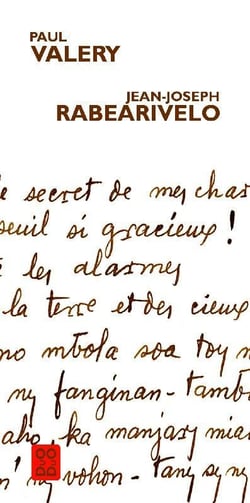 PAUL
VALERY
JEAN-JOSEPH
RABEARIVELO
e secret de mes char
seuil si gracieux !
les alarmes
la terre et des cieux
no mbola soa toy n
ny fanginan - tamb
aho, ka manjary mia
ny vohon - tany sy ny